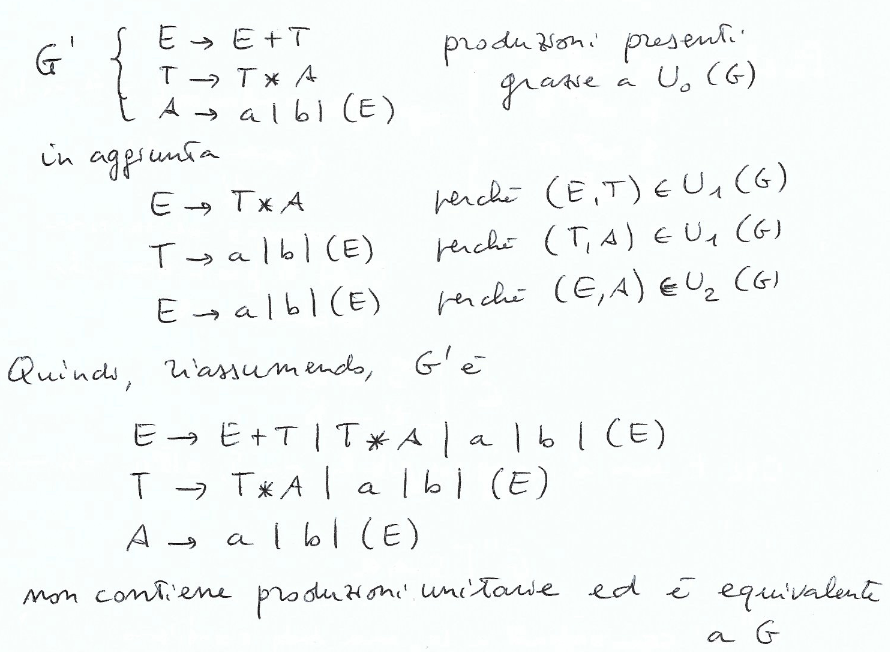 G' { E → E + T produzioni presenti
T → T * A grazie a U₀ (G)
A → a | b | (E)
in aggiunta
E → T * A perché (E, T) ∈ U₁ (G)
T → a | b | (E) perché (T, A) ∈ U₁ (G)
E → a | b | (E) perché (E, A) ∈ U₂ (G)
Quindi, riassumendo, G' è
E → E + T | T * A | a | b | (E)
T → T * A | a | b | (E)
A → a | b | (E)
non contiene produzioni unitarie ed è equivalente
a G